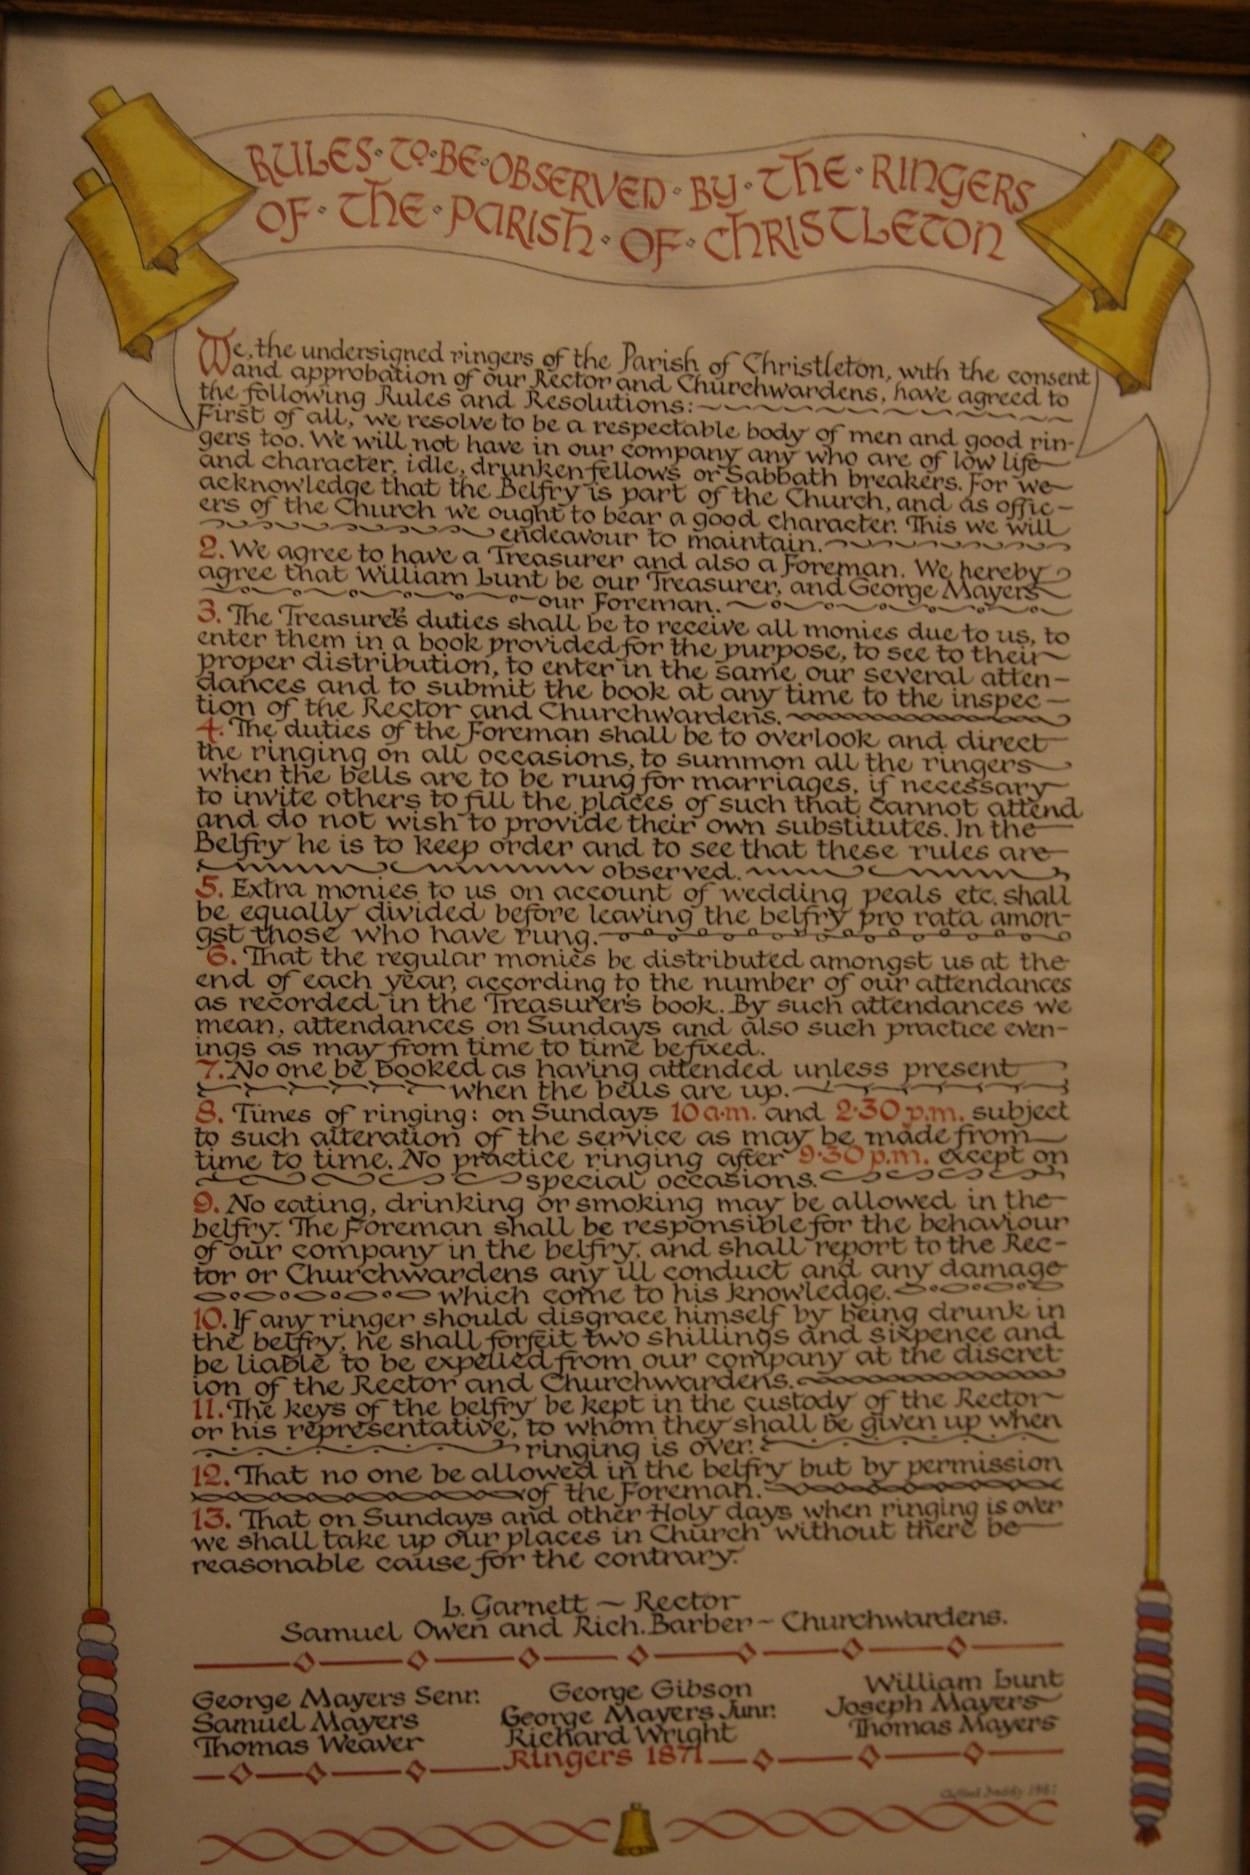 RULES·TO·BE·OBSERVED·BY·THE·RINGERS
OF·THE·PARISH·OF·CHRISTLETON
We, the undersigned ringers of the Parish of Christleton, with the consent
and approbation of our Rector and Churchwardens, have agreed to
the following Rules and Resolutions:
First of all, we resolve to be a respectable body of men and good rin-
gers too. We will not have in our company any who are of low life
and character, idle, drunken fellows or Sabbath breakers. For we
acknowledge that the Belfry is part of the Church, and as offic-
ers of the Church we ought to bear a good character. This we will
endeavour to maintain.
2. We agree to have a Treasurer and also a Foreman. We hereby
agree that William Lunt be our Treasurer, and George Mayers
our Foreman.
3. The Treasure's duties shall be to receive all monies due to us, to
enter them in a book provided for the purpose, to see to their
proper distribution, to enter in the same our several atten-
dances and to submit the book at any time to the inspec-
tion of the Rector and Churchwardens.
4. The duties of the Foreman shall be to overlook and direct
the ringing on all occasions, to summon all the ringers
when the bells are to be rung for marriages, if necessary
to invite others to fill the places of such that cannot attend
and do not wish to provide their own substitutes. In the
Belfry he is to keep order and to see that these rules are
observed.
5. Extra monies to us on account of wedding peals etc. shall
be equally divided before leaving the belfry pro rata amon-
gst those who have rung.
6. That the regular monies be distributed amongst us at the
end of each year, according to the number of our attendances
as recorded in the Treasurer's book. By such attendances we
mean, attendances on Sundays and also such practice even-
ings as may from time to time be fixed.
7. No one be booked as having attended unless present
when the bells are up.
8. Times of ringing: on Sundays 10 a.m. and 2·30 p.m. subject
to such alteration of the service as may be made from
time to time. No practice ringing after 9·30 p.m. except on
special occasions.
9. No eating, drinking or smoking may be allowed in the
belfry. The Foreman shall be responsible for the behaviour
of our company in the belfry, and shall report to the Rec-
tor or Churchwardens any ill conduct and any damage
which come to his knowledge.
10. If any ringer should disgrace himself by being drunk in
the belfry, he shall forfeit two shillings and sixpence and
be liable to be expelled from our company at the discret-
ion of the Rector and Churchwardens.
11. The keys of the belfry be kept in the custody of the Rector
or his representative, to whom they shall be given up when
ringing is over.
12. That no one be allowed in the belfry but by permission
of the Foreman.
13. That on Sundays and other Holy days when ringing is over
we shall take up our places in Church without there be
reasonable cause for the contrary.
L. Garnett ~ Rector
Samuel Owen and Rich. Barber ~ Churchwardens.
George Mayers Senr. George Gibson William Lunt
Samuel Mayers George Mayers Junr. Joseph Mayers
Thomas Weaver Richard Wright Thomas Mayers
Ringers 1871